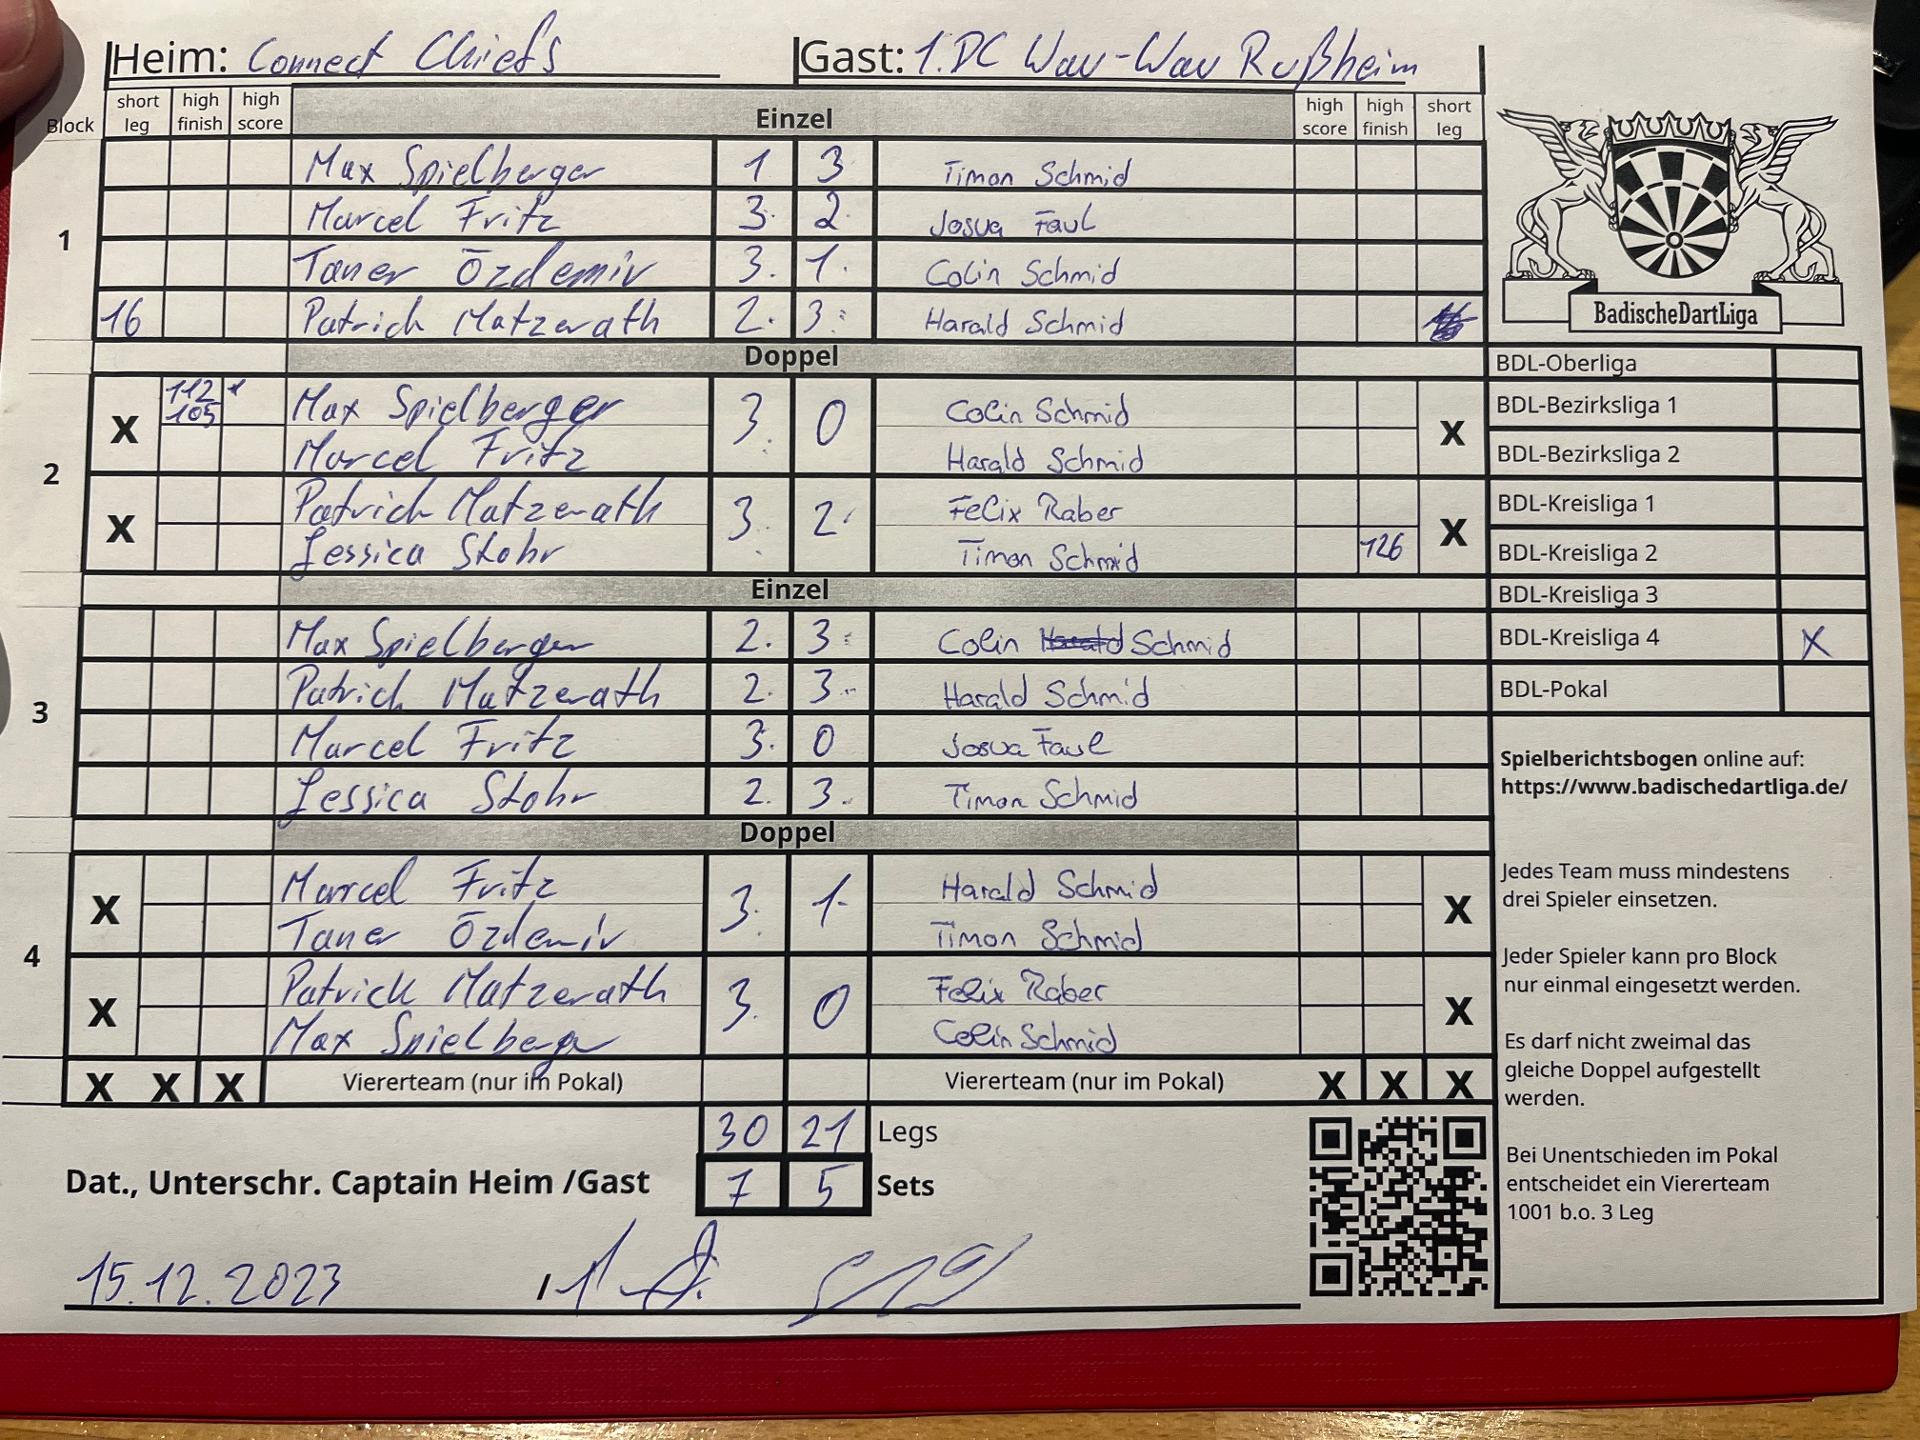 Heim: Connect Chiefs Gast: 1. DC Wau-Wau Rußheim
Block short leg high finish high score Einzel high score high finish short leg
1
Max Spielberger 1 3 Timon Schmid
Marcel Fritz 3 2 Josua Faul
Taner Özdemir 3 1 Colin Schmid
16 Patrick Matzerath 2 3 Harald Schmid
BadischeDartLiga
Doppel
2
X 112 105 1 Max Spielberger 3 0 Colin Schmid X
Marcel Fritz Harald Schmid
X Patrick Matzerath 3 2 Felix Raber X
Jessica Stohr Timon Schmid 126
Einzel
3
Max Spielberger 2 3 Colin Schmid
Patrick Matzerath 2 3 Harald Schmid
Marcel Fritz 3 0 Josua Faul
Jessica Stohr 2 3 Timon Schmid
Doppel
4
X Marcel Fritz 3 1 Harald Schmid X
Taner Özdemir Timon Schmid
X Patrick Matzerath 3 0 Felix Raber X
Max Spielberger Colin Schmid
X X X Viererteam (nur im Pokal) Viererteam (nur im Pokal) X X X
30 21 Legs
Dat., Unterschr. Captain Heim /Gast 7 5 Sets
15.12.2023 /
BDL-Oberliga
BDL-Bezirksliga 1
BDL-Bezirksliga 2
BDL-Kreisliga 1
BDL-Kreisliga 2
BDL-Kreisliga 3
BDL-Kreisliga 4 X
BDL-Pokal
Spielberichtsbogen online auf:
https://www.badischedartliga.de/
Jedes Team muss mindestens
drei Spieler einsetzen.
Jeder Spieler kann pro Block
nur einmal eingesetzt werden.
Es darf nicht zweimal das
gleiche Doppel aufgestellt
werden.
Bei Unentschieden im Pokal
entscheidet ein Viererteam
1001 b.o. 3 Leg